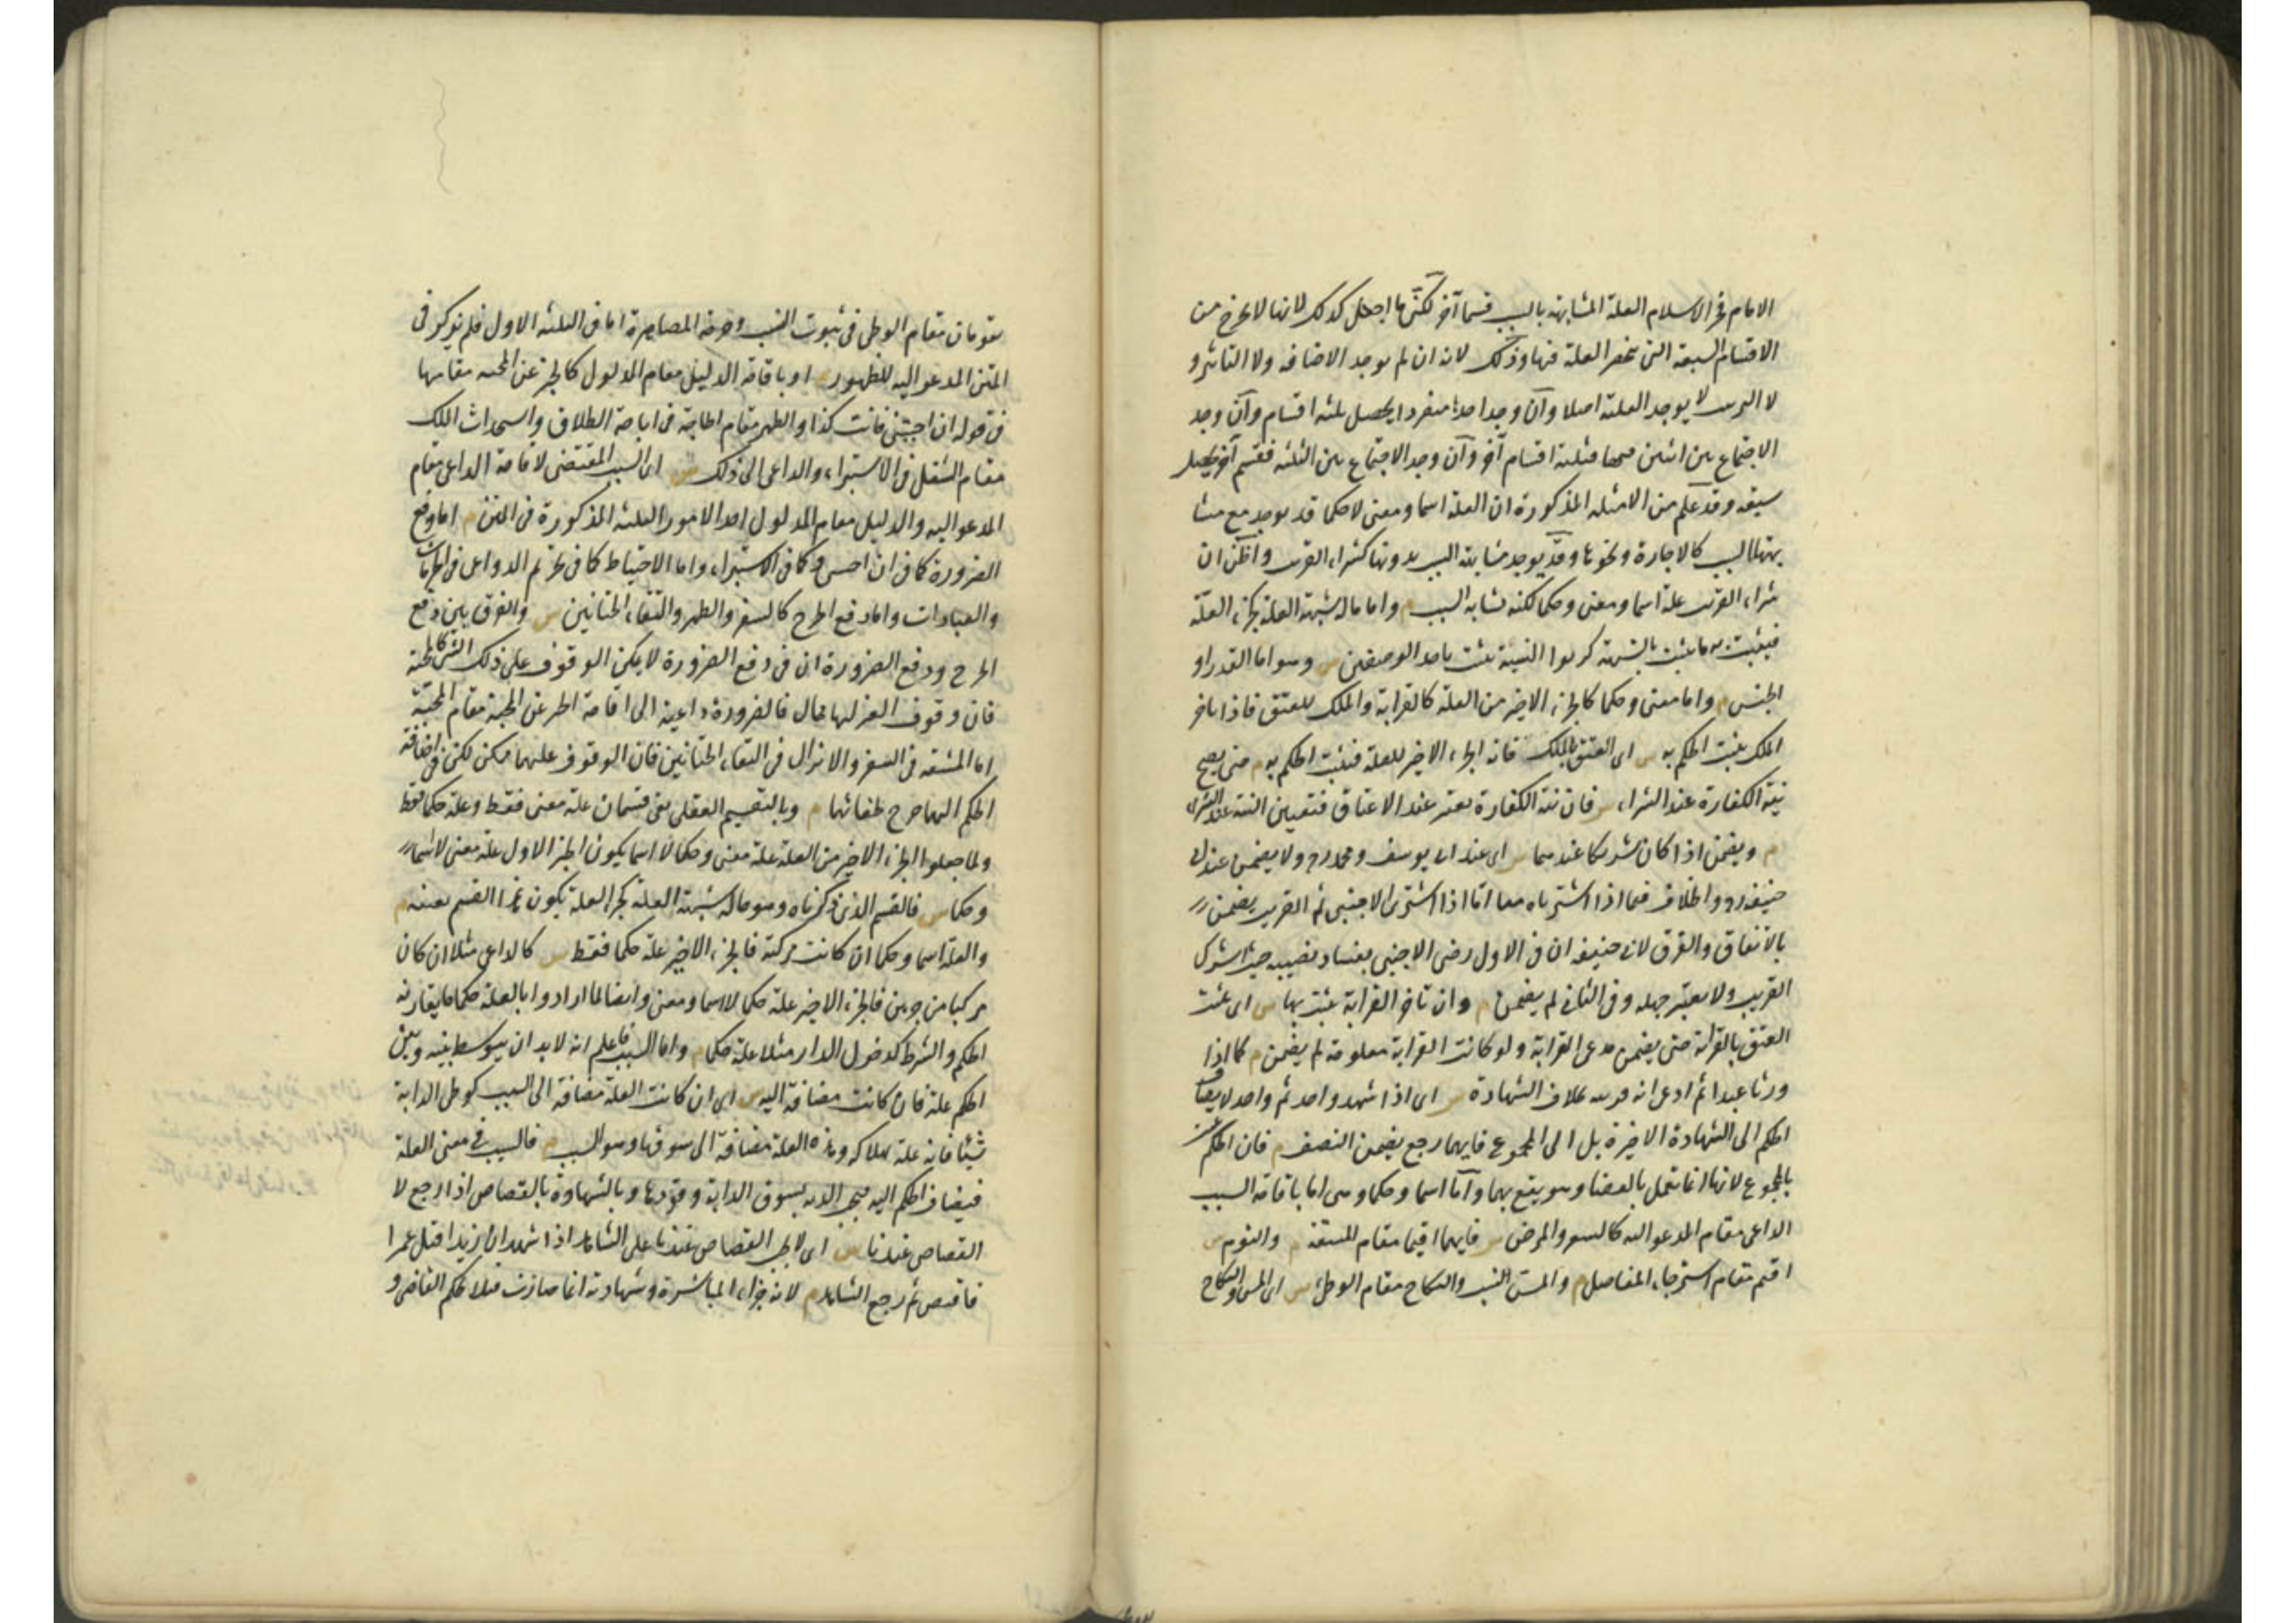 الامام فخر الاسلام العلة المشابهة بالسبب قسما آخر لكنى ما اجعل كذلك لانها لا تخرج من
الاقسام السبعة التى تنحصر العلة فيها وذلك لانه ان لم يوجد الاضافه ولا التاثير و
لا الترتب لا يوجد العلة اصلا وان وجد احدها منفردا يحصل ثلثه اقسام وان وجد
الاجتماع بين اثنين منها فثلثة اقسام آخر وان وجد الاجتماع بين الثلثه فقسم آخر يحصل
سبعة وقد علم من الامثله المذكورة ان العلة اسما ومعنى لا حكما قد يوجد مع مشا
بهتها السبب كالاجارة ونحوها وقد يوجد مشابهة السبب بدونها كشراء القريب واظن ان
شراء القريب علة اسما ومعنى وحكما لكنه يشابه السبب م واما ماله شبهة العلة كجزء العلة
فيثبت به ما يثبت بالشبهة كربوا النسيئة يثبت باحد الوصفين س وهو اما القدر او
الجنس م واما معنى وحكما كالجزء الاخير من العلة كالقرابة والملك للعتق فاذا تاخر
الملك يثبت الحكم به س اى العتق بالملك فانه الجزء الاخير للعلة فيثبت الحكم به م حتى يصح
نية الكفارة عند الشراء س فان نية الكفارة تعتبر عند الاعتاق فتعتبر النية عند الشراء
م ويضمن اذا كان شريكا عندهما س اى عند ابى يوسف ومحمد رح ولا يضمن عند ابى
حنيفه رح والخلاف فيما اذا اشترياه معا اما اذا اشترى الاجنبى ثم القريب يضمن
بالاتفاق والفرق لابى حنيفه ان فى الاول رضى الاجنبى بفساد نصيبه حيث اشترك
القريب ولا يعتبر جهله وفى الثانى لم يضمن م وان تاخر القرابة يثبت بها س اى يثبت
العتق بالقرابة حتى يضمن مدعى القرابة ولو كانت القرابة معلومة لم يضمن م كما اذا
ورثا عبدا ثم ادعى انه قريبه بخلاف الشهادة س اى اذا شهد واحد ثم واحد لا يضاف
الحكم الى الشهادة الاخيرة بل الى المجموع فايهما رجع يضمن النصف م فان الحكم يثبت
بالمجموع لانها انما تعمل بالقضا وهو يقع بهما واما اسما وحكما وهى اما باقامة السبب
الداعى مقام المدعو اليه كالسفر والمرض س فانهما اقيما مقام المشقة م والنوم س
اقيم مقام استرخاء المفاصل م والمس والنكاح مقام الوطى س اى المس والنكاح
يقومان مقام الوطى فى ثبوت النسب وحرمة المصاهرة اما فى الثلثه الاول فلم يذكر فى
المتن المدعو اليه للظهور م او باقامة الدليل مقام المدلول كالخبر عن المحبه مقامها
فى قوله ان احببتنى فانت كذا والطهر مقام الحاجة فى اباحة الطلاق واستحداث الملك
مقام الشغل فى الاستبراء والداعى الى ذلك س اى السبب المقتضى لاقامة الداعى مقام
المدعو اليه والدليل مقام المدلول احد الامور الثلثه المذكورة فى المتن م اما دفع
الضرورة كما فى ان احببتنى وكما فى الاستبراء واما الاحتياط كما فى تحريم الدواعى فى المحرمات
والعبادات واما دفع الحرج كالسفر والطهر والتقاء الختانين س والفرق بين دفع
الحرج ودفع الضرورة ان فى دفع الضرورة لا يمكن الوقوف على ذلك الشئ كالمحبة
فان وقوف الغير عليها محال فالضرورة داعية الى اقامة الخبر عن المحبة مقام المحبة
اما المشقه فى السفر والانزال فى التقاء الختانين فان الوقوف عليهما ممكن لكن فى اضافة
الحكم اليهما حرج لخفائهما م وبالتقسيم العقلى بقى قسمان علة معنى فقط وعلة حكما فقط
ولما جعلوا الجزء الاخير من العلة علة معنى وحكما لا اسما يكون الجزء الاول علة معنى لا اسما
وحكما س فالقسم الذى ذكرناه وهو ماله شبهة العلة كجزء العلة يكون هذا القسم بعينه م
والعلة اسما وحكما ان كانت مركبة فالجزء الاخير علة حكما فقط س كالداعى مثلا ان كان
مركبا من جزءين فالجزء الاخير علة حكما لا اسما ومعنى وايضا لما ارادوا بالعلة حكما ما يقارنه
الحكم والشرط كدخول الدار مثلا علة حكما م واما السبب فاعلم انه لا بد ان يتوسط بينه وبين
الحكم علة فان كانت مضافة اليه س اى ان كانت العلة مضافة الى السبب كوطى الدابة
شيئا فانه علة لهلاكه وهذه العلة مضافة الى سوقها وهو السبب م فالسبب فى معنى العلة
فيضاف الحكم اليه فيجب الدية بسوق الدابة وقودها وبالشهادة بالقصاص اذا رجع لا
القصاص عندنا س اى لا يجب القصاص عندنا على الشاهد اذا شهد ان زيدا قتل عمرا
فاقتص ثم رجع الشاهد م لانه جزاء المباشرة وشهادته انما صارت قتلا بحكم القاضى و